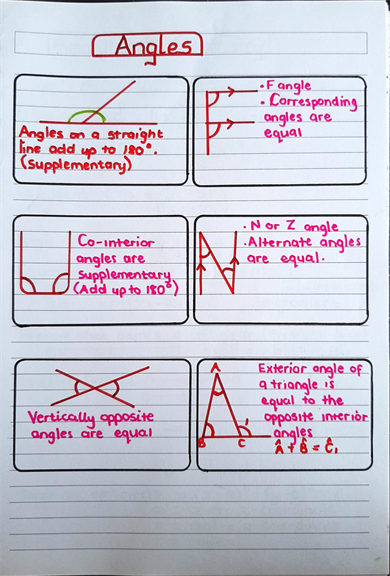 Angles
Angles on a straight
line add up to 180°.
(Supplementary)
· F angle
· Corresponding
angles are
equal
Co-interior
angles are
Supplementary
(Add up to 180°)
· N or Z angle
· Alternate angles
are equal.
Vertically opposite
angles are equal
A
B
C
1
Exterior angle of
a triangle is
equal to the
opposite interior
angles
Â + B̂ = Ĉ₁